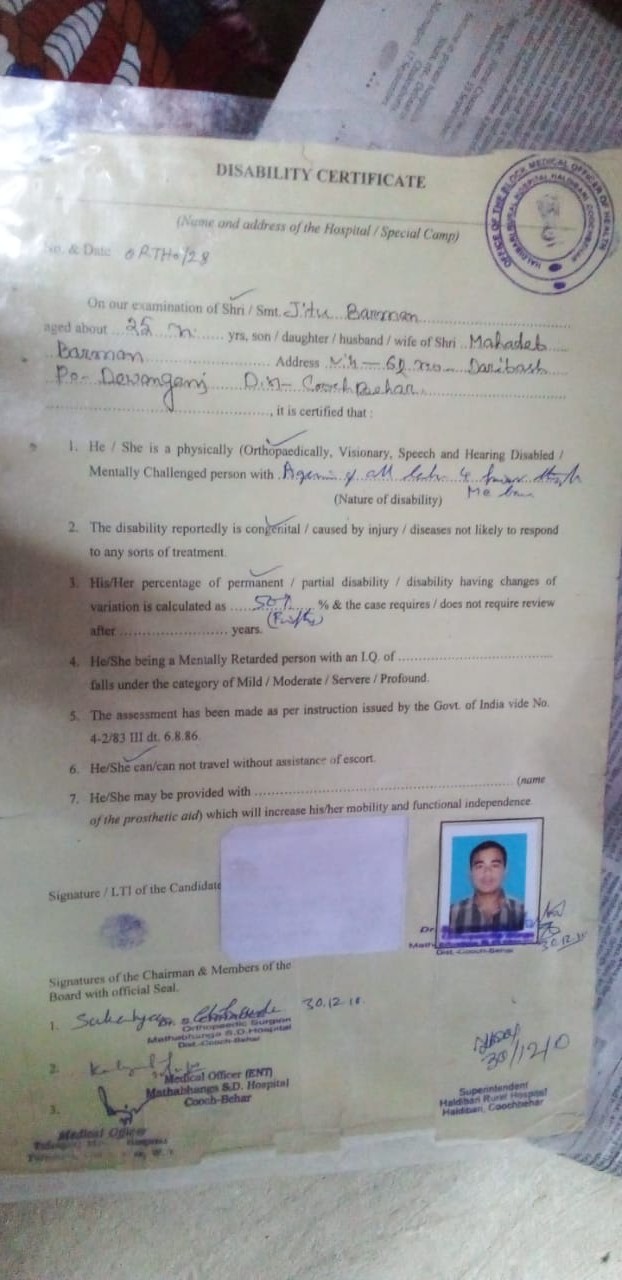 DISABILITY CERTIFICATE
OFFICE OF THE BLOCK MEDICAL OFFICER OF HEALTH
HALDIBARI RURAL HOSPITAL, HALDIBARI, COOCHBEHAR
(Name and address of the Hospital / Special Camp)
No. & Date ORTHO/28
On our examination of Shri / Smt. Jitu Barman
aged about 25 yrs, son / daughter / husband / wife of Shri Mahadeb
Barman Address Daribash
Po- Dewanganj Dist- Cooch Behar
, it is certified that :
1. He / She is a physically (Orthopaedically, Visionary, Speech and Hearing Disabled /
Mentally Challenged person with
(Nature of disability)
2. The disability reportedly is congenital / caused by injury / diseases not likely to respond
to any sorts of treatment.
3. His/Her percentage of permanent / partial disability / disability having changes of
variation is calculated as 50% % & the case requires / does not require review
(Fifty)
after years.
4. He/She being a Mentally Retarded person with an I.Q. of
falls under the category of Mild / Moderate / Servere / Profound.
5. The assessment has been made as per instruction issued by the Govt. of India vide No.
4-2/83 III dt. 6.8.86.
6. He/She can/can not travel without assistance of escort.
7. He/She may be provided with (name
of the prosthetic aid) which will increase his/her mobility and functional independence.
Signature / LTI of the Candidate
Dr.
Dist.-Cooch-Behar
30.12.10
Signatures of the Chairman & Members of the
Board with official Seal.
1. 30.12.10.
Orthopaedic Surgeon
Mathabhanga S.D. Hospital
Dist.-Cooch-Behar
2.
Medical Officer (ENT)
Mathabhanga S.D. Hospital
Cooch-Behar
3.
Medical Officer
30/12/10
Superintendent
Haldibari Rural Hospital
Haldibari, Coochbehar